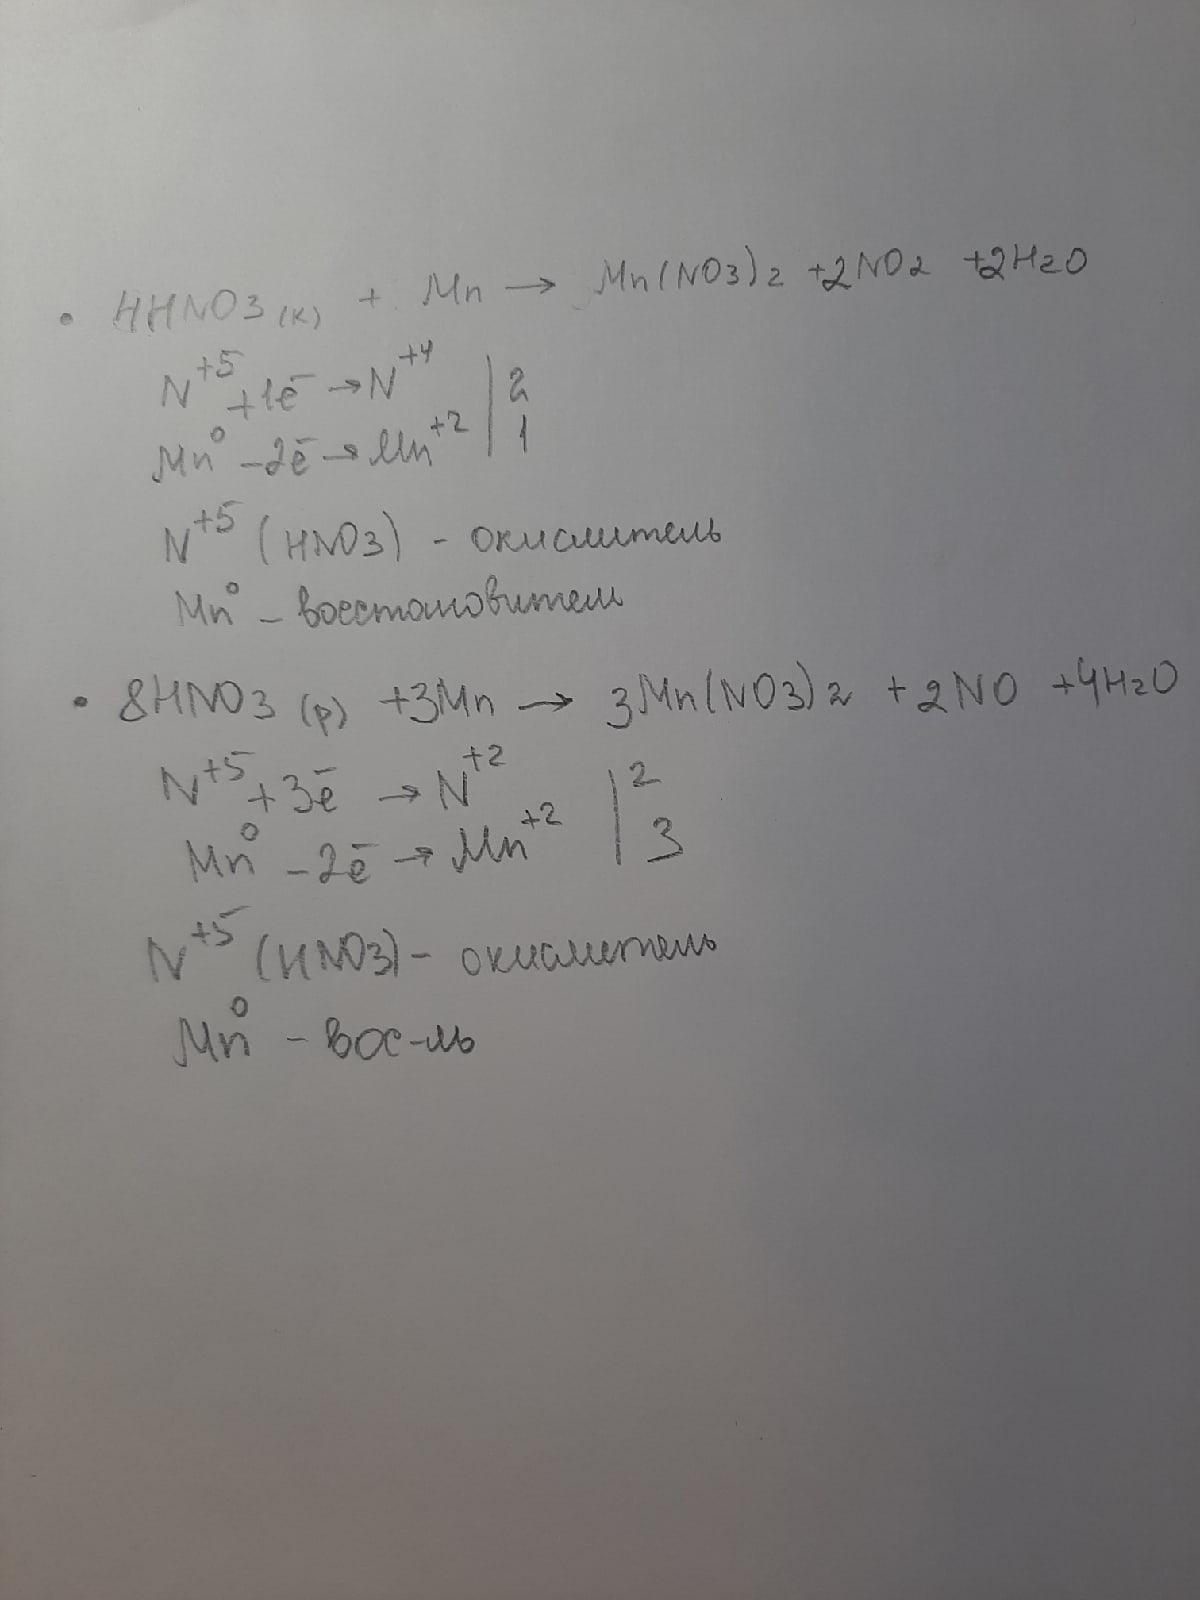 • 4HNO3 (к) + Mn → Mn(NO3)2 +2NO2 +2H2O
N+5 +1ē → N+4 | 2
Mn0 -2ē → Mn+2 | 1
N+5 (HNO3) - окислитель
Mn0 - восстановитель
• 8HNO3 (р) +3Mn → 3Mn(NO3)2 +2NO +4H2O
N+5 +3ē → N+2 | 2
Mn0 -2ē → Mn+2 | 3
N+5 (HNO3) - окислитель
Mn0 - вос-ль